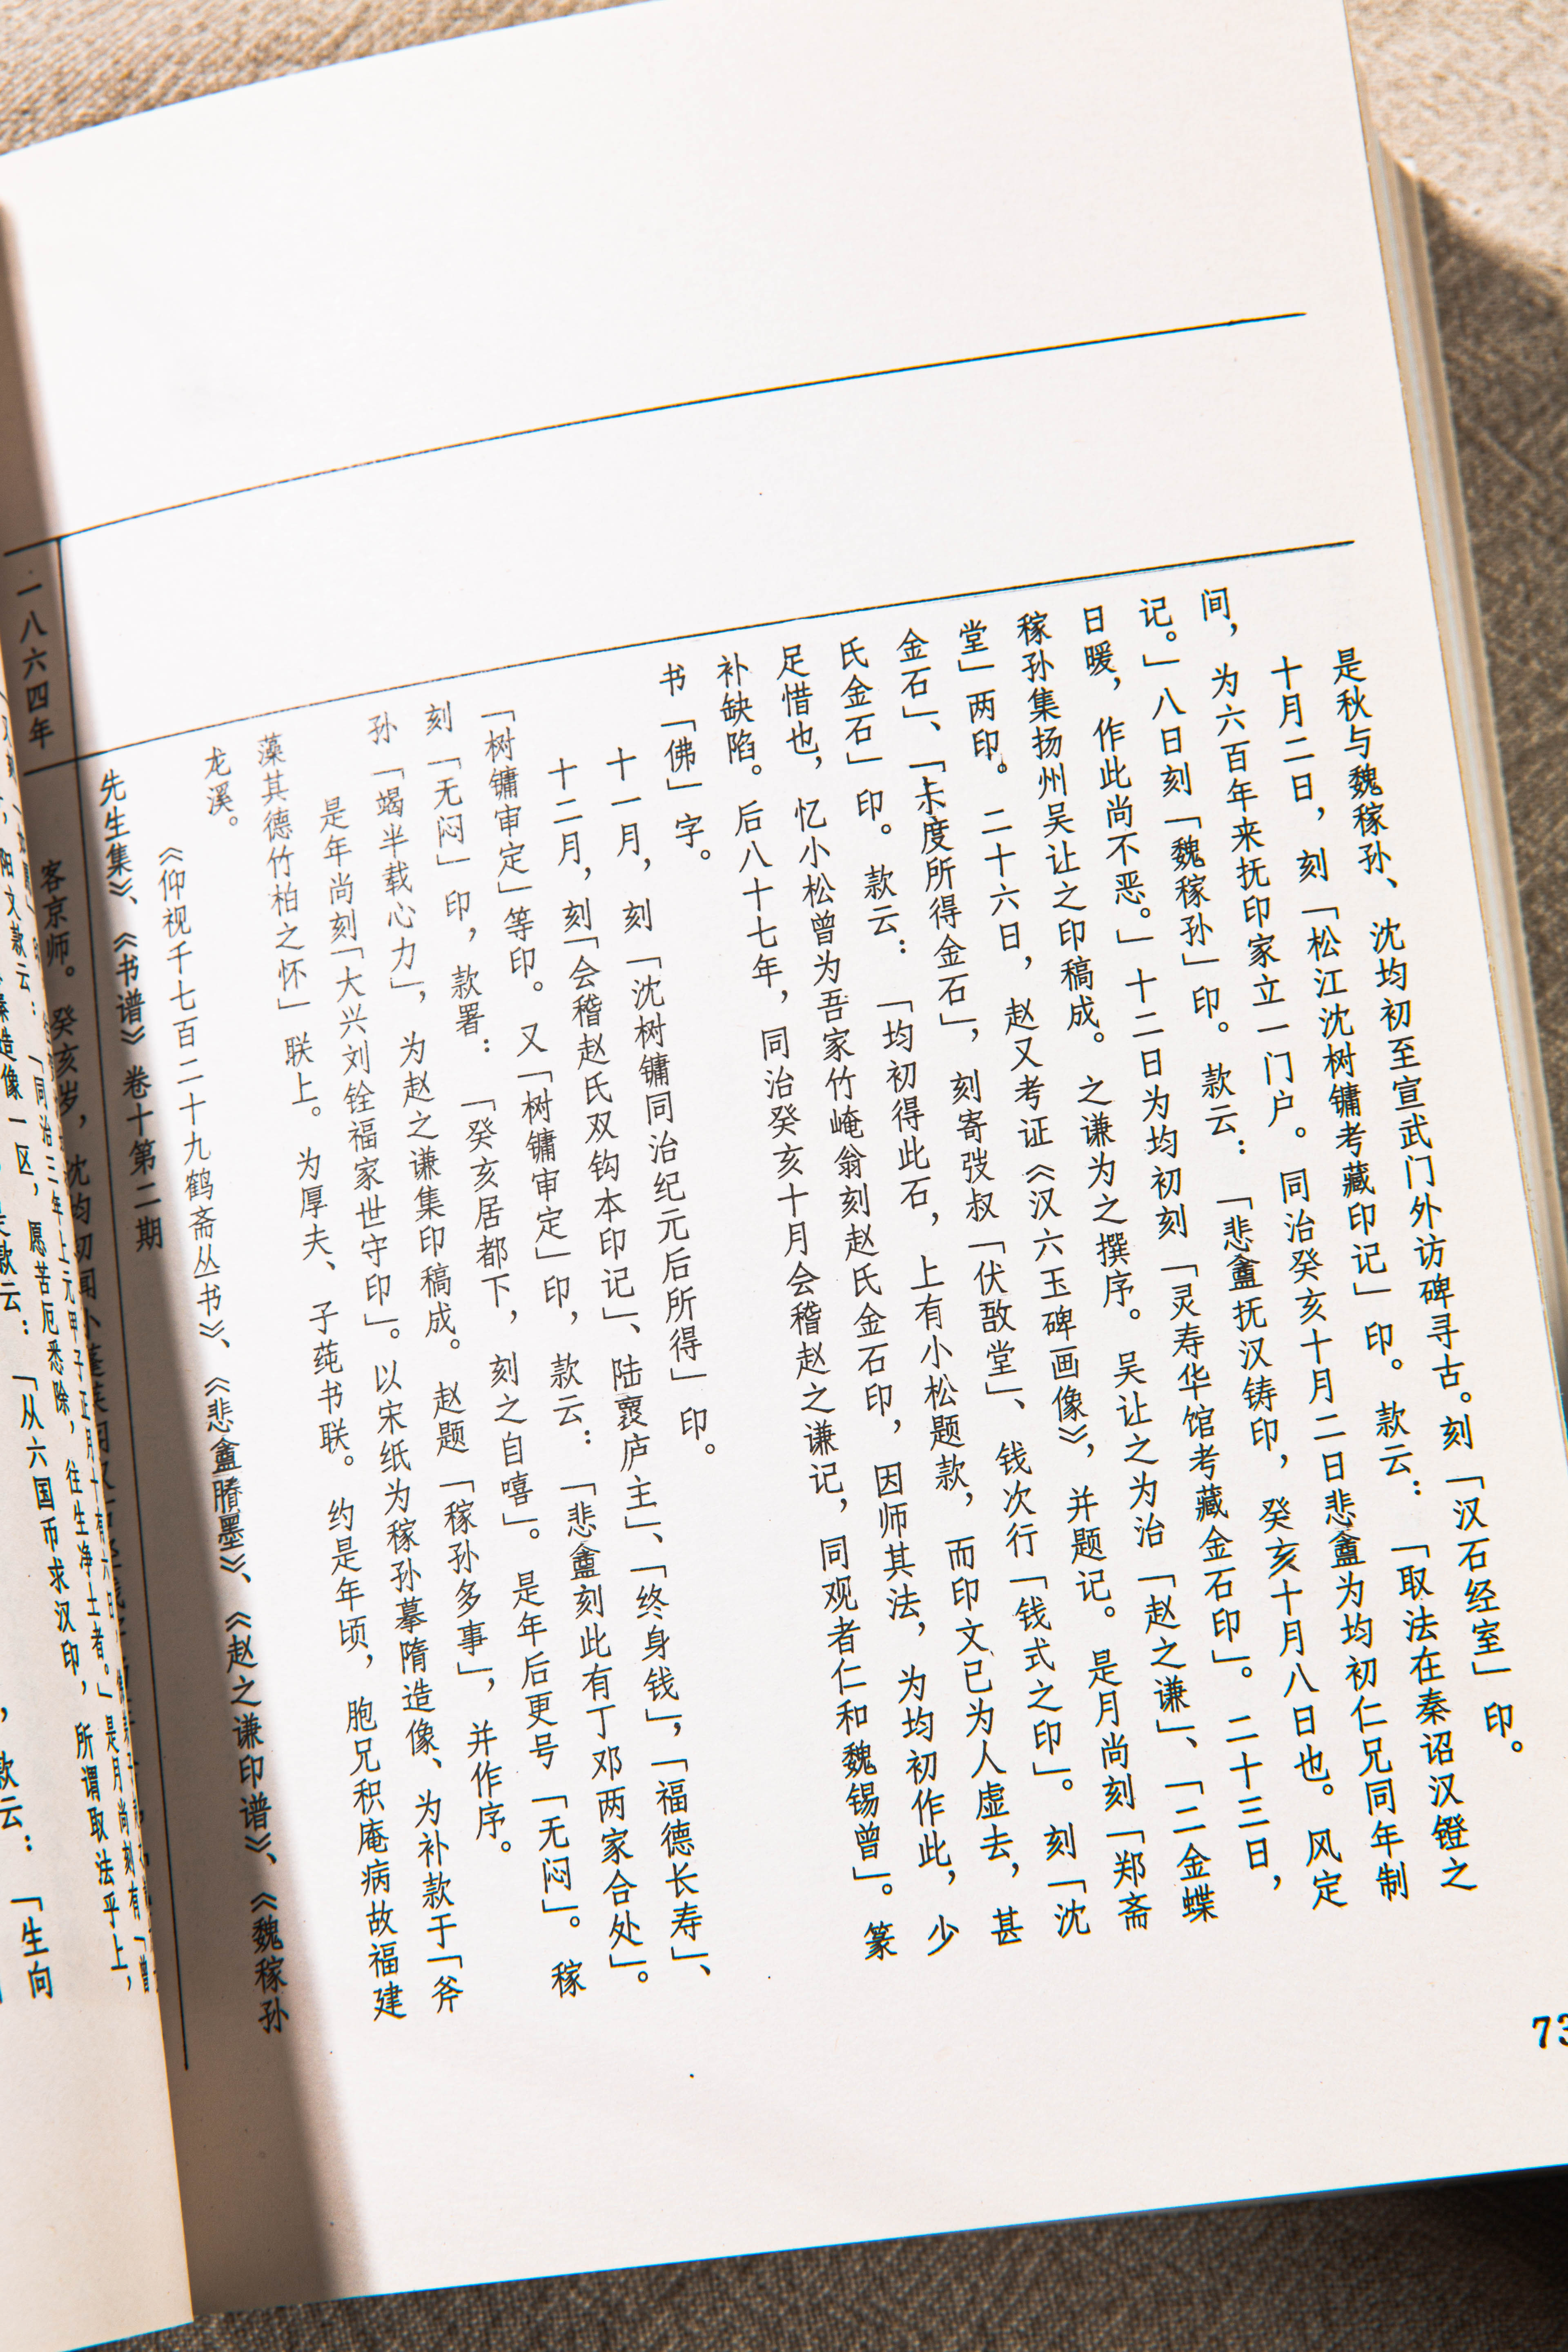 是秋与魏稼孙、沈均初至宣武门外访碑寻古。刻「汉石经室」印。
十月二日，刻「松江沈树镛考藏印记」印。款云：「取法在秦诏汉镫之
间，为六百年来抚印家立一门户。同治癸亥十月二日悲盦为均初仁兄同年制
记。」八日刻「魏稼孙」印。款云：「悲盦抚汉铸印，癸亥十月八日也。风定
日暖，作此尚不恶。」十二日为均初刻「灵寿华馆考藏金石印」。二十三日，
稼孙集扬州吴让之印稿成。之谦为之撰序。吴让之为治「赵之谦」、「二金蝶
堂」两印。二十六日，赵又考证《汉六玉碑画像》，并题记。是月尚刻「郑斋
金石」、「未度所得金石」，刻寄弢叔「伏敔堂」、钱次行「钱式之印」。刻「沈
氏金石」印。款云：「均初得此石，上有小松题款，而印文已为人虚去，甚
足惜也，忆小松曾为吾家竹崦翁刻赵氏金石印，因师其法，为均初作此，少
补缺陷。后八十七年，同治癸亥十月会稽赵之谦记，同观者仁和魏锡曾」。篆
书「佛」字。
十一月，刻「沈树镛同治纪元后所得」印。
十二月，刻「会稽赵氏双钩本印记」、陆襄庐主」、「终身钱」，「福德长寿」、
「树镛审定」等印。又「树镛审定」印，款云：「悲盦刻此有丁邓两家合处」。
刻「无闷」印，款署：「癸亥居都下，刻之自嘻」。是年后更号「无闷」。稼
孙「竭半载心力」，为赵之谦集印稿成。赵题「稼孙多事」，并作序。
是年尚刻「大兴刘铨福家世守印」。以宋纸为稼孙摹隋造像、为补款于「斧
藻其德竹柏之怀」联上。为厚夫、子莼书联。约是年顷，胞兄积庵病故福建
龙溪。
《仰视千七百二十九鹤斋丛书》、《悲盦賸墨》、《赵之谦印谱》、《魏稼孙
先生集》、《书谱》卷十第二期
一八六四年
客京师。癸亥岁，沈均初闻小
愿苦厄悉除，往生净土者。」是月尚刻有「曾
「从六国币求汉印，所谓取法乎上，
款云：「生向
73